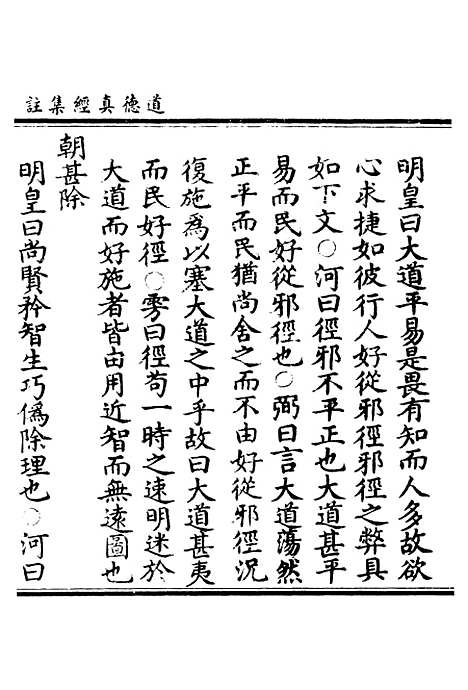 道德真經集註
明皇曰大道平易是畏有知而人多故欲
心求捷如彼行人好從邪徑邪徑之弊具
如下文○河曰徑邪不平正也大道甚平
易而民好從邪徑也○弼曰言大道蕩然
正平而民猶尚舍之而不由好從邪徑況
復施爲以塞大道之中乎故曰大道甚夷
而民好徑○雱曰徑苟一時之速明迷於
大道而好施者皆由用近智而無遠圖也
朝甚除
明皇曰尚賢矜智生巧僞除理也○河曰